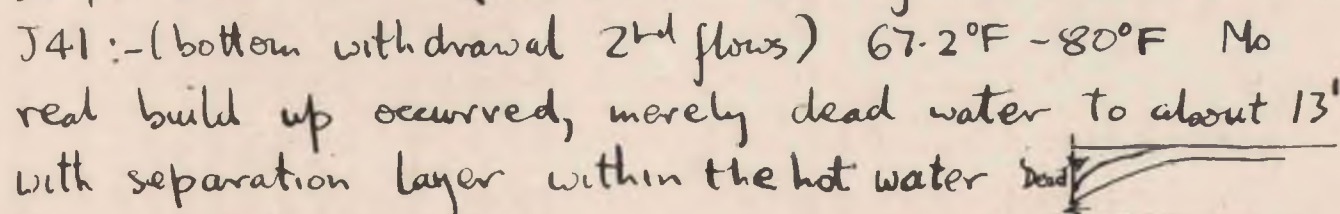 J41:-(bottom withdrawal 2nd flows) 67.2°F -80°F No
real build up occurred, merely dead water to about 13'
with separation layer within the hot water Dead